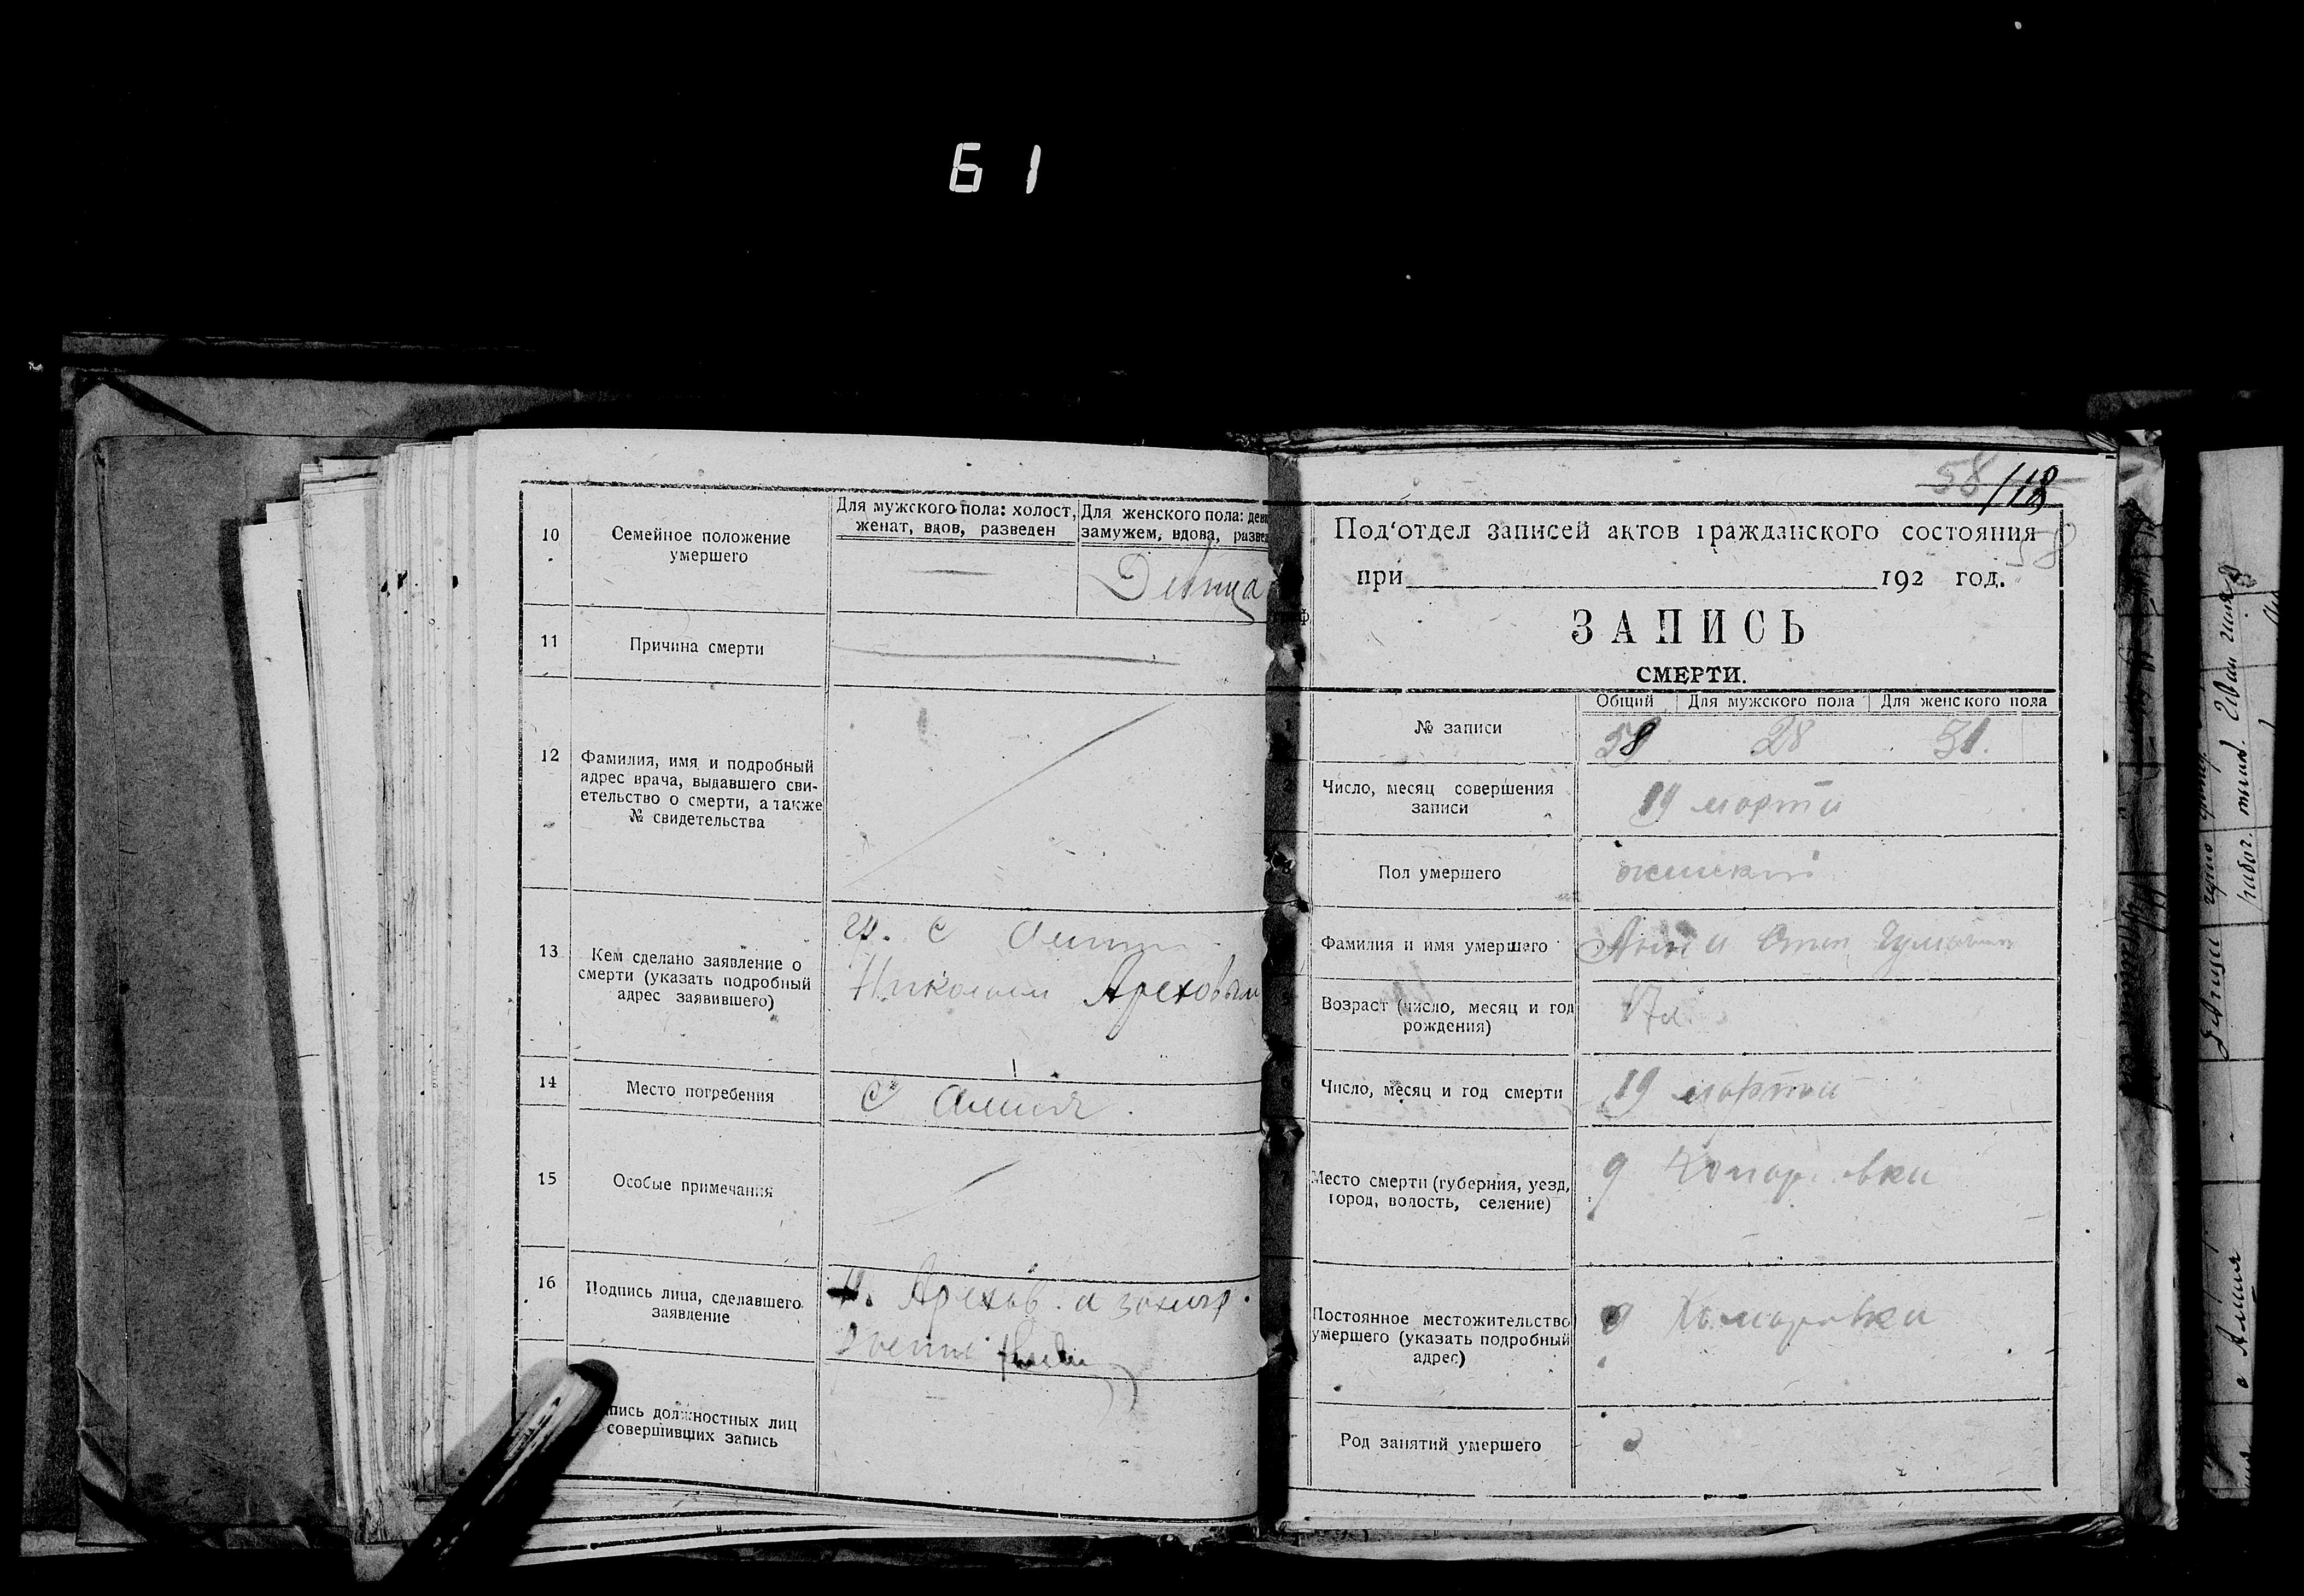 61
10
Семейное положение
умершего
Для мужского пола: холост,
женат, вдов, разведен
Для женского пола: деви
замужем, вдова, развед
Девица
11
Причина смерти
12
Фамилия, имя и подробный
адрес врача, выдавшего сви-
етельство о смерти, а также
№ свидетельства
13
Кем сделано заявление о
смерти (указать подробный
адрес заявившего)
гр. с
Николаем Ареховым
14
Место погребения
с
15
Особые примечания
16
Подпись лица, сделавшего
заявление
Н. Арехов. а
пись должностных лиц
совершивших запись
58 118
58
Под‘отдел записей актов гражданского состояния
при 192 год.
ЗАПИСЬ
СМЕРТИ.
№ записи
Общий
Для мужского пола
Для женского пола
58 28 31.
Число, месяц совершения
записи
19 марта
Пол умершего
женский
Фамилия и имя умершего
Анна
Возраст (число, месяц и год
рождения)
Число, месяц и год смерти
19 марта
Место смерти (губерния, уезд,
город, волость, селение)
д Комаровка
Постоянное местожительство
умершего (указать подробный
адрес)
д Комаровка
Род занятий умершего